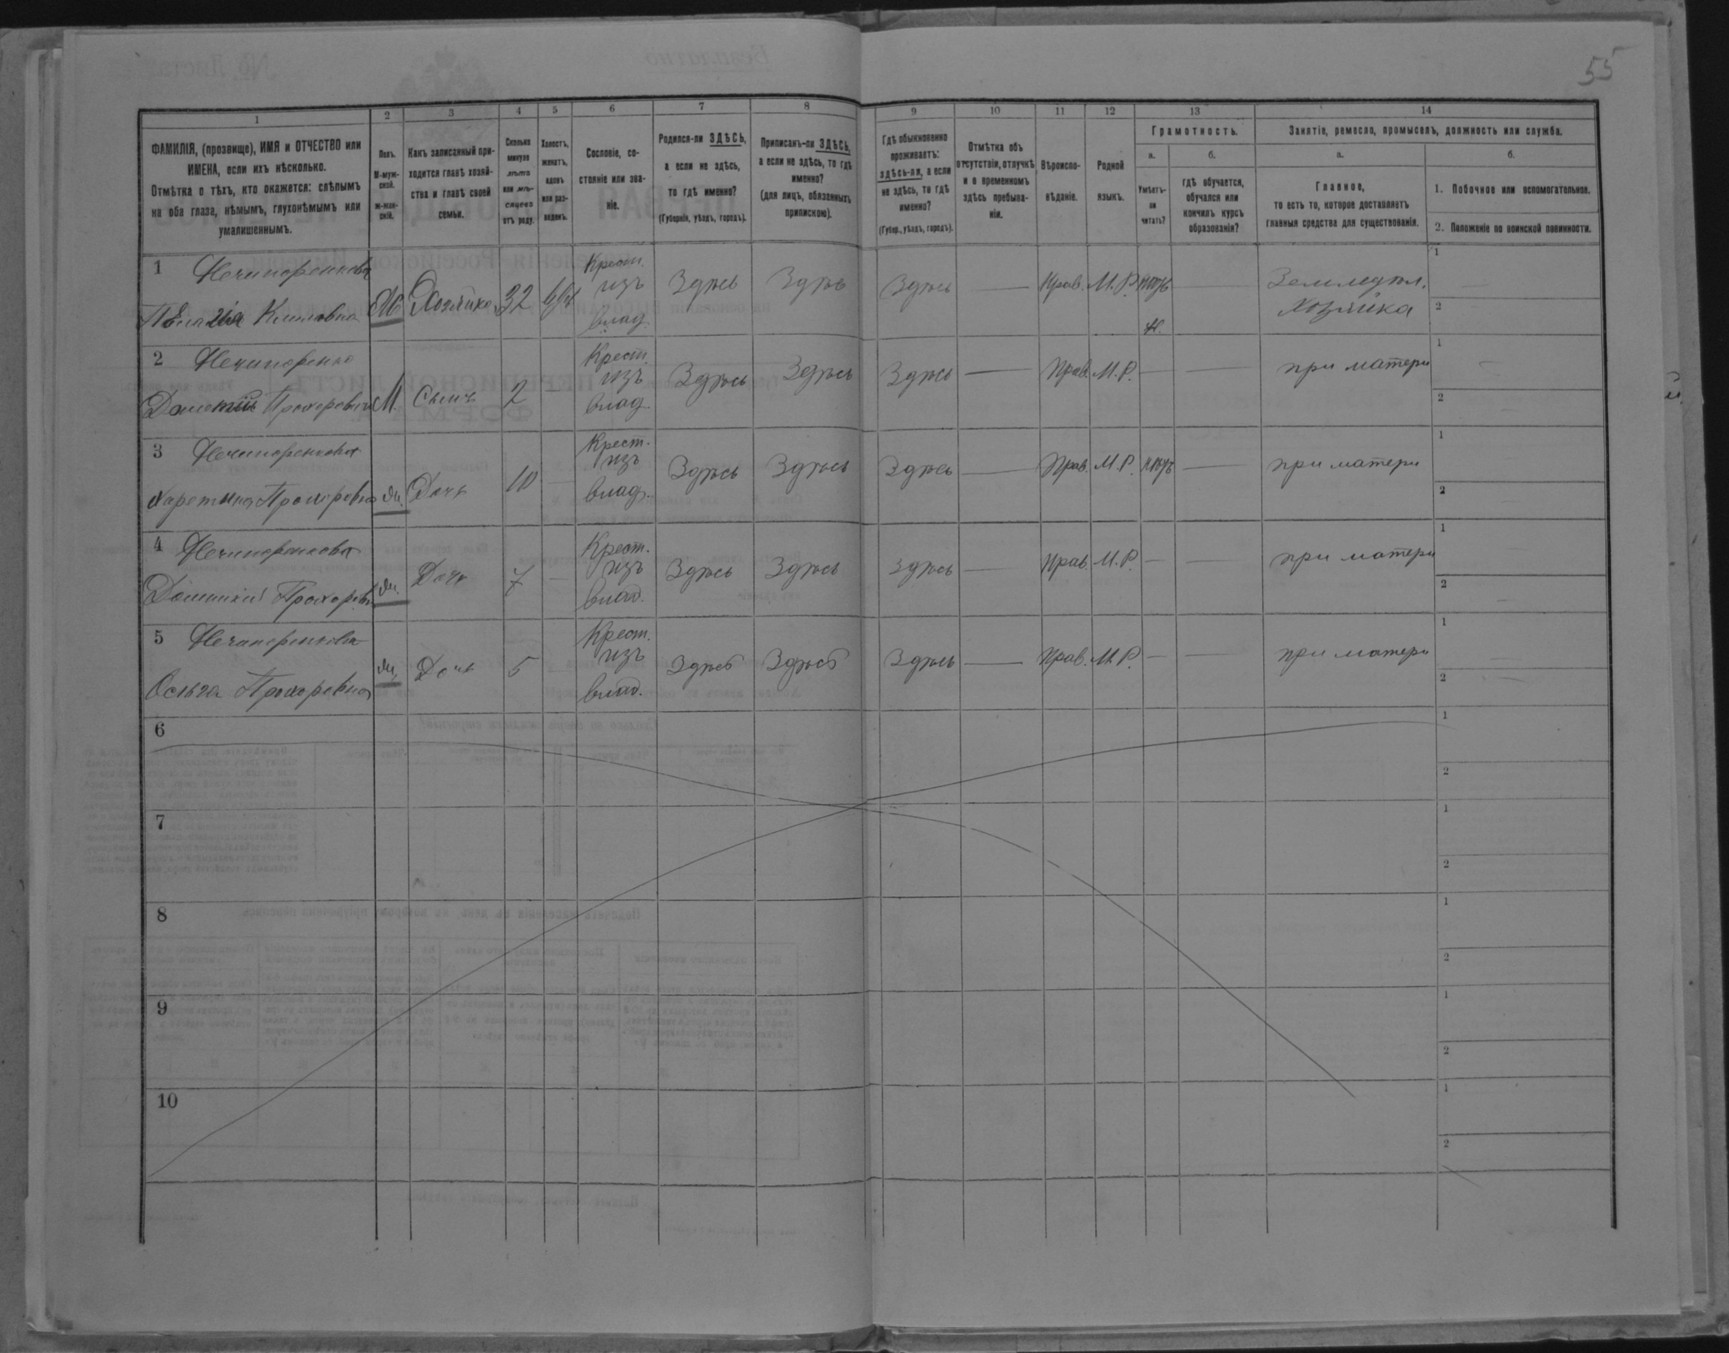 55
1 2 3 4 5 6 7 8 9 10 11 12 13 14
ФАМИЛІЯ, (прозвище), ИМЯ и ОТЧЕСТВО или
ИМЕНА, если ихъ нѣсколько.
Отмѣтка о тѣхъ, кто окажется: слѣпымъ
на оба глаза, нѣмымъ, глухонѣмымъ или
умалишеннымъ.
Полъ.
М-муж-
ской.
ж-жен-
скій.
Какъ записанный при-
ходится главѣ хозяй-
ства и главѣ своей
семьи.
Сколько
минуло
лѣтъ
или мѣ-
сяцевъ
отъ роду.
Холостъ,
женатъ,
вдовъ
или раз-
веденъ.
Сословіе, со-
стояніе или зва-
ніе.
Родился-ли ЗДѢСЬ,
а если не здѣсь,
то гдѣ именно?
(Губернія, уѣздъ, городъ).
Приписанъ-ли ЗДѢСЬ,
а если не здѣсь, то гдѣ
именно?
(для лицъ, обязанныхъ
припискою).
Гдѣ обыкновенно
проживаетъ:
здѣсь-ли, а если
не здѣсь, то гдѣ
именно?
(Губер., уѣздъ, городъ).
Отмѣтка объ
отсутствіи, отлучкѣ
и о временномъ
здѣсь пребыва-
ніи.
Вѣроиспо-
вѣданіе.
Родной
языкъ.
Грамотность.
а.
Умѣетъ-
ли
читать?
б.
гдѣ обучается,
обучался или
кончилъ курсъ
образованія?
Занятіе, ремесло, промыселъ, должность или служба.
а.
Главное,
то есть то, которое доставляетъ
главныя средства для существованія.
б.
1. Побочное или вспомогательное.
2. Положеніе по воинской повинности.
1 Нечипоренкова
Климовна
Хозяйка 32 вд.
Крест.
изъ
влад.
Здѣсь Здѣсь Здѣсь — Прав. М.Р. —
Земледѣл.
Хозяйка
1
2
2 Нечипоренко
Прохоровичъ М. Сынъ 2 —
Крест.
изъ
влад.
Здѣсь Здѣсь Здѣсь — Прав. М.Р. — — при матери
1
2
3 Нечипоренкова
Харетина Прохоровна ж. Дочь 10 —
Крест.
изъ
влад.
Здѣсь Здѣсь Здѣсь — Прав. М.Р. — при матери
1
2
4 Нечипоренкова
Прохоровн ж. Дочь 7 —
Крест.
изъ
влад.
Здѣсь Здѣсь Здѣсь — Прав. М.Р. — — при матери
1
2
5 Нечипоренкова
Прохоровна ж. Дочь 5 —
Крест.
изъ
влад.
Здѣсь Здѣсь Здѣсь — Прав. М.Р. — — при матери
1
2
6
1
2
7
1
2
8
1
2
9
1
2
10
1
2